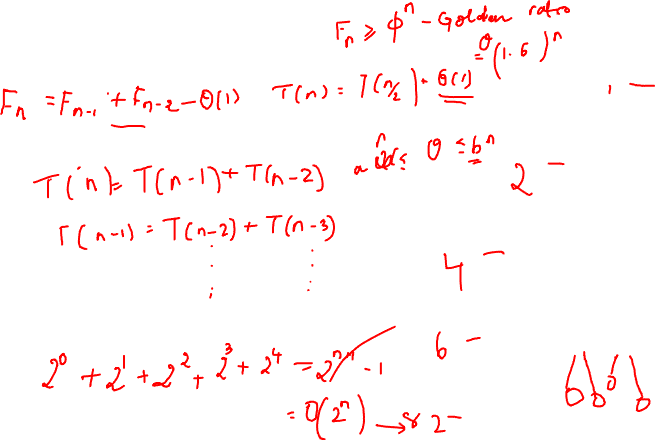 Fn ≥ φ^n - Golden ratio
= θ(1.6)^n
Fn = Fn-1 + Fn-2 - θ(1) T(n) = T(n/2) + θ(1) 1 -
θ ≤ b^n
T(n) = T(n-1) + T(n-2) 2 -
T(n-1) = T(n-2) + T(n-3)
4 -
6 -
2^0 + 2^1 + 2^2 + 2^3 + 2^4 = 2^n - 1
= O(2^n) → 8 2 -